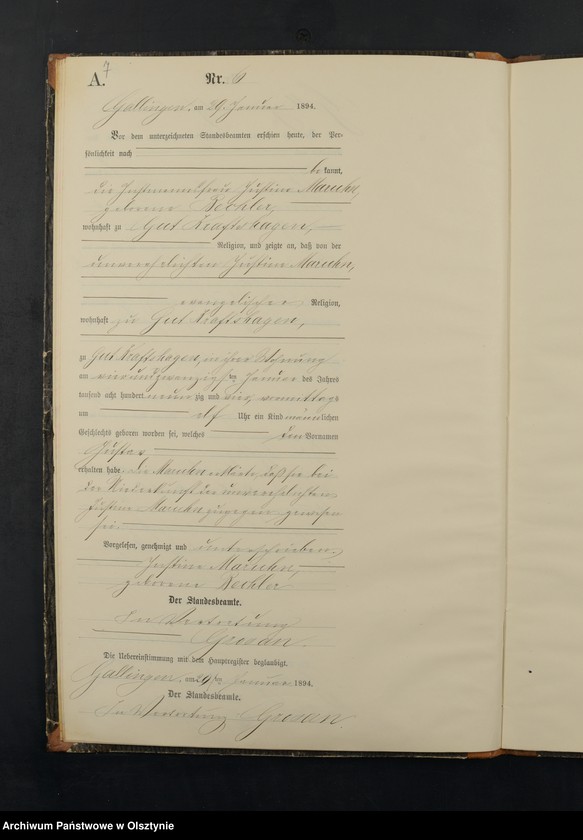 A. 7
Nr. 6
Gallingen, am 29. Januar 1894.
Vor dem unterzeichneten Standesbeamten erschien heute, der Per-
sönlichkeit nach
be kannt,
die Instmannsfrau Justine Maruhn,
geborene Bechler,
wohnhaft zu Gut Kraftshagen,
Religion, und zeigte an, daß von der
unverehelichten Justine Maruhn,
evangelischer Religion,
wohnhaft zu Gut Kraftshagen,
zu Gut Kraftshagen, in ihrer Wohnung
am vierundzwanzigsten Januar des Jahres
tausend acht hundert neunzig und vier, vormittags
um elf Uhr ein Kind männlichen
Geschlechts geboren worden sei, welches den Vornamen
Gustav
erhalten habe. Die Maruhn erklärte, daß sie bei
der Niederkunft der unverehelichten
Justine Maruhn zugegen gewesen
sei.
Vorgelesen, genehmigt und unterschrieben.
Justine Maruhn,
geborene Bechler
Der Standesbeamte.
In Vertretung
Grosan.
Die Uebereinstimmung mit dem Hauptregister beglaubigt.
Gallingen, am 29ten Januar 1894.
Der Standesbeamte.
In Vertretung Grosan.
Archiwum Państwowe w Olsztynie